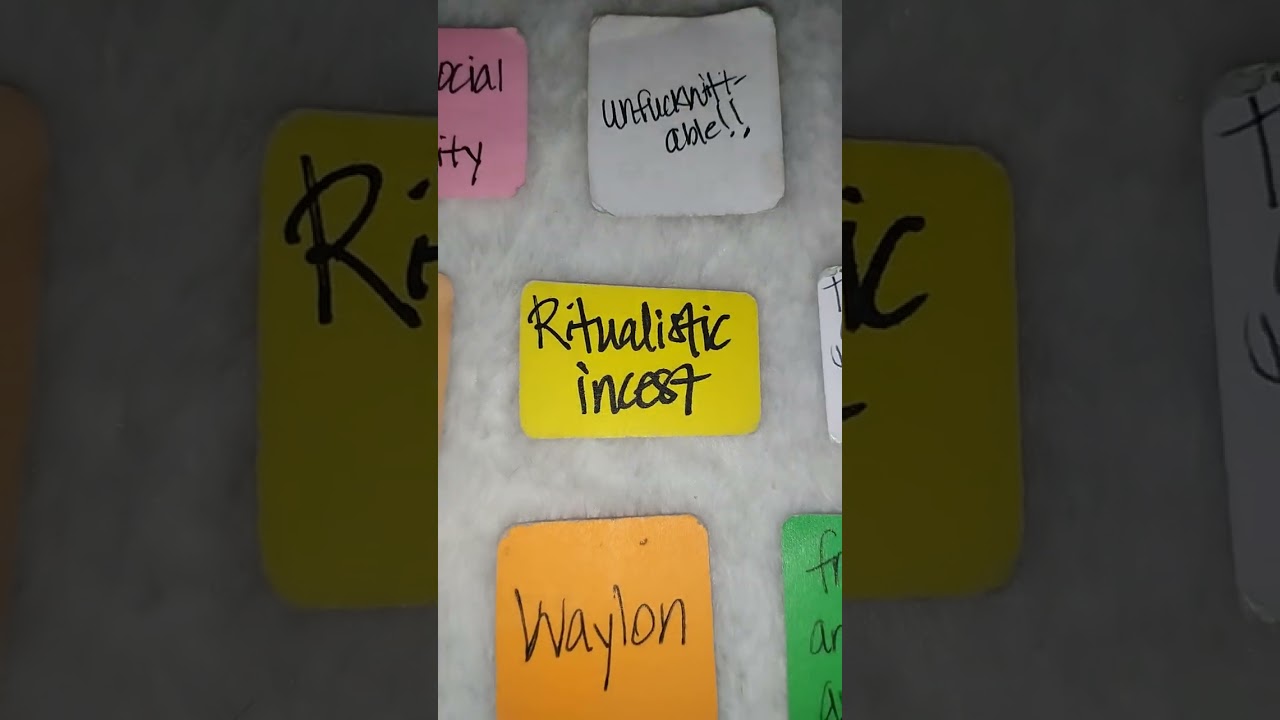 ocial
ity
unfucknitt-
able!!
Ritualistic
incest
Waylon
fr
ar